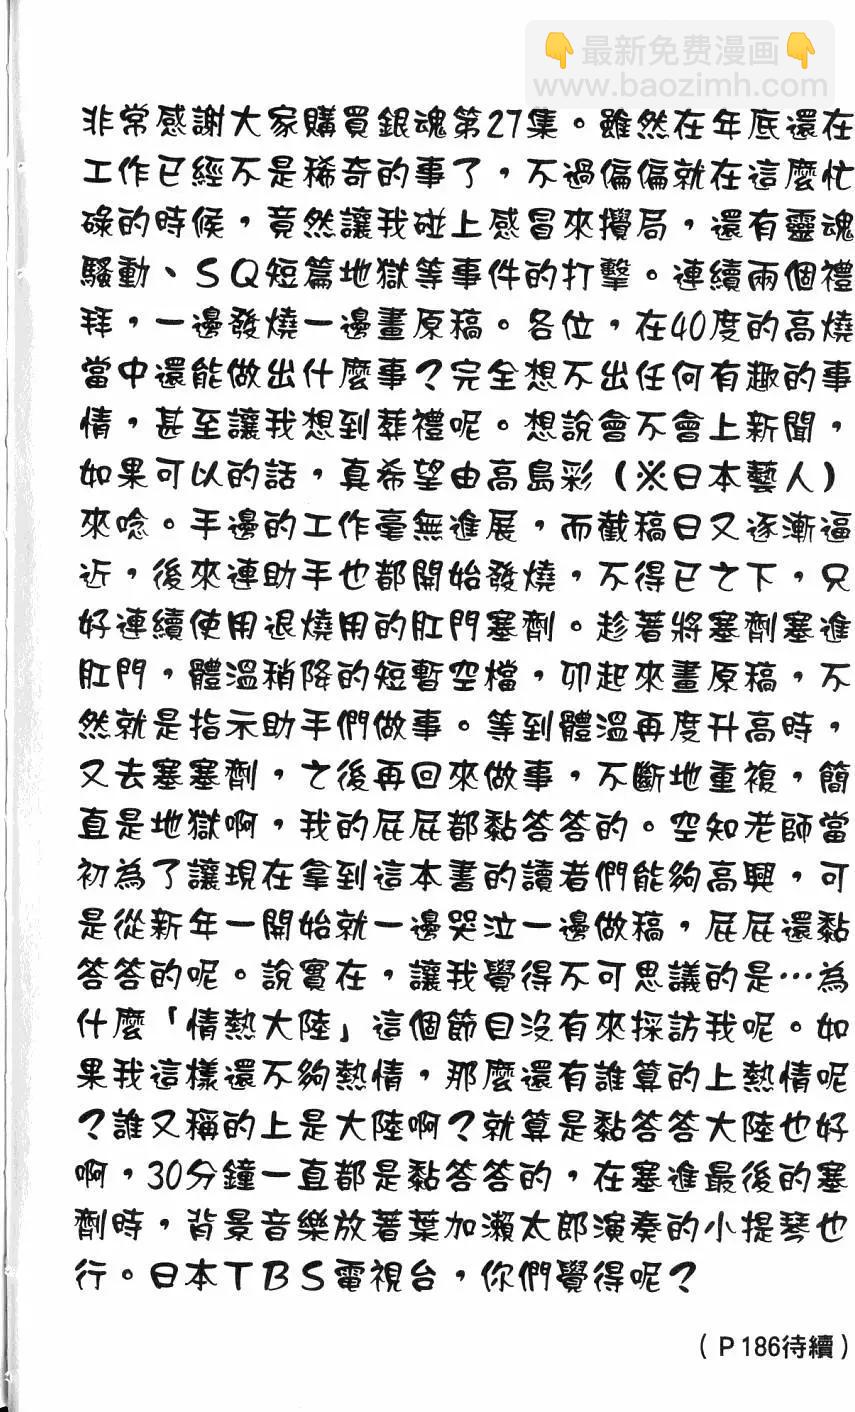 👇最新免费漫画👇
www.baozimh.com
非常感謝大家購買銀魂第27集。雖然在年底還在
工作已經不是稀奇的事了，不過偏偏就在這麼忙
碌的時候，竟然讓我碰上感冒來攪局，還有靈魂
騷動、SQ短篇地獄等事件的打擊。連續兩個禮
拜，一邊發燒一邊畫原稿。各位，在40度的高燒
當中還能做出什麼事？完全想不出任何有趣的事
情，甚至讓我想到葬禮呢。想說會不會上新聞，
如果可以的話，真希望由高島彩（※日本藝人）
來唸。手邊的工作毫無進展，而截稿日又逐漸逼
近，後來連助手也都開始發燒，不得已之下，只
好連續使用退燒用的肛門塞劑。趁著將塞劑塞進
肛門，體溫稍降的短暫空檔，卯起來畫原稿，不
然就是指示助手們做事。等到體溫再度升高時，
又去塞塞劑，之後再回來做事，不斷地重複，簡
直是地獄啊，我的屁屁都黏答答的。空知老師當
初為了讓現在拿到這本書的讀者們能夠高興，可
是從新年一開始就一邊哭泣一邊做稿，屁屁還黏
答答的呢。說實在，讓我覺得不可思議的是…為
什麼「情熱大陸」這個節目沒有來採訪我呢。如
果我這樣還不夠熱情，那麼還有誰算的上熱情呢
？誰又稱的上是大陸啊？就算是黏答答大陸也好
啊，30分鐘一直都是黏答答的，在塞進最後的塞
劑時，背景音樂放著葉加瀨太郎演奏的小提琴也
行。日本TBS電視台，你們覺得呢？
（P186待續）